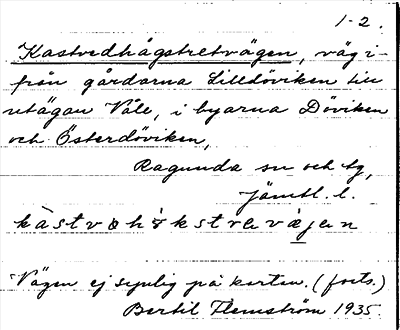 1-2.
Kastvedhågstretvägen, väg i-
från gårdarna Lilldöviken till
utägan Våle, i byarna Döviken
och Österdöviken,
Ragunda sn och tg,
Jämtl. l.
Vägen ej synlig på kartan. (forts.)
Bertil Flemström 1935.